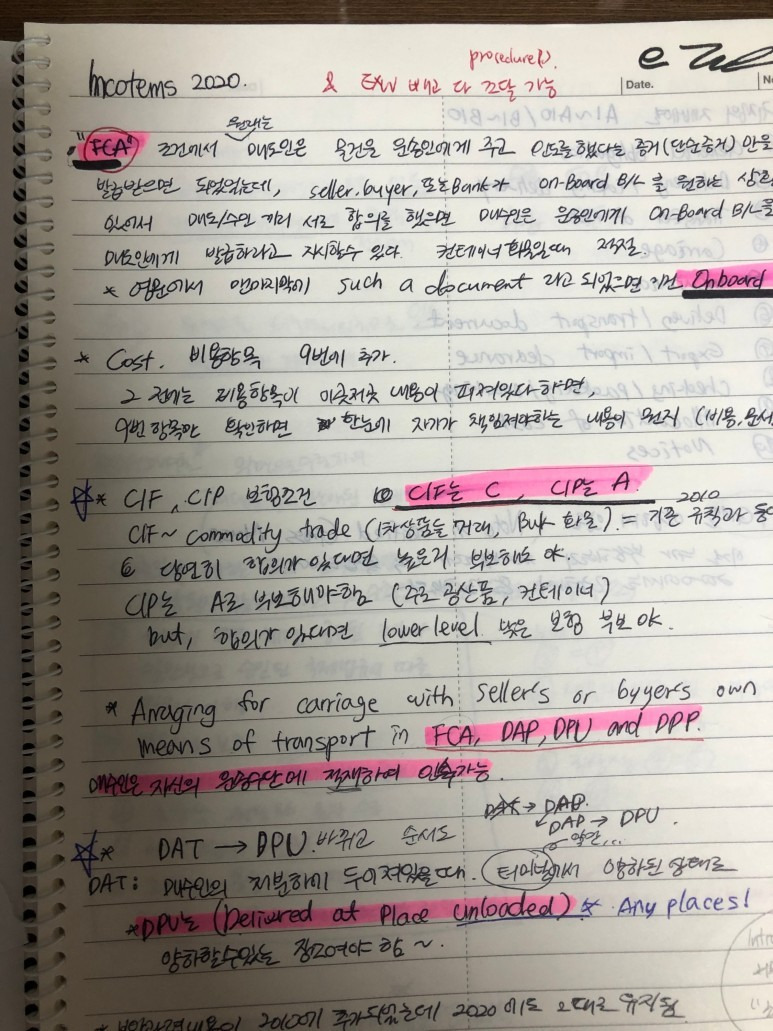 procedure().
Incotems 2020.
& EXW 빼고 다 조달 가능
Date.
원래는
"FCA" 조건에서 매도인은 물건을 운송인에게 주고 인도를 했다는 증거(단순증거) 만을
발급받으면 되었었는데, seller, buyer, 또는 Bank가 on-Board B/L 을 원하는 상황
있어서 매도/수인 끼리 서로 합의를 했으면 매수인은 운송인에게 On-Board B/L을
매도인에게 발급하라고 지시할수 있다. 컨테이너 화물일때 적절.
* 영원에서 맨마지막에 such a document 라고 되있으면 이건 Onboard
* Cost. 비용항목 9번에 추가.
그 전에는 비용항목이 이곳저곳 내용이 퍼져있다하면,
9번 항목만 확인하면 한눈에 자기가 책임져야하는 내용이 뭔지 (비용,
☆* CIF, CIP 보험조건 CIF는 C, CIP는 A.
2010
CIF ~ commodity trade (1차상품들 거래, Bulk 화물) = 기존 규칙과 동
당연히 합의가 있다면 높은거 부보해도 ok.
CIP는 A로 부보해야함 (주로 공산품, 컨테이너)
but, 합의가 있다면 lower level 낮은 보험 부보 ok.
* Arraging for carriage with seller's or byyer's own
means of transport in FCA, DAP, DPU and DPP.
매수인은 자신의 운송수단에 적재하여 인수가능.
DAT → DAP.
DAP → DPU.
약간...
☆* DAT → DPU. 바뀌고 순서도
DAT: 매수인의 처분하에 두어져있을때. 터미널에서 양하된 상태로
*DPU는 (Delivered at Place Unloaded) * Any places!
양하할수있는 장소여야 함 ~.
2010에 추가되었는데 2020 에도 그대로 유지됨